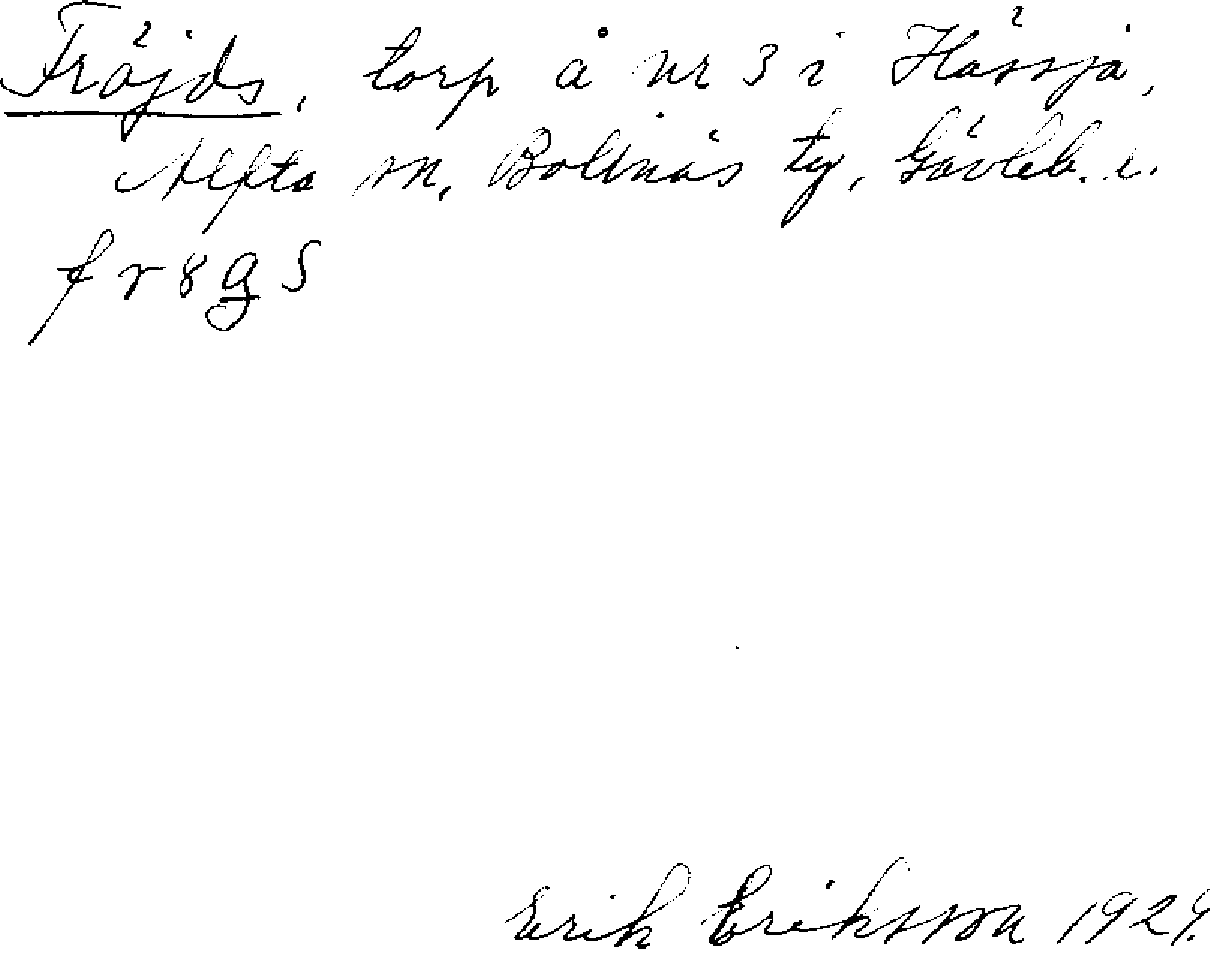 Fröjds, torp å nr 3 i Hässja,
Alfta sn, Bollnäs tg, Gävleb. l.
f r 8 g s
Erik Eriksson 1929.